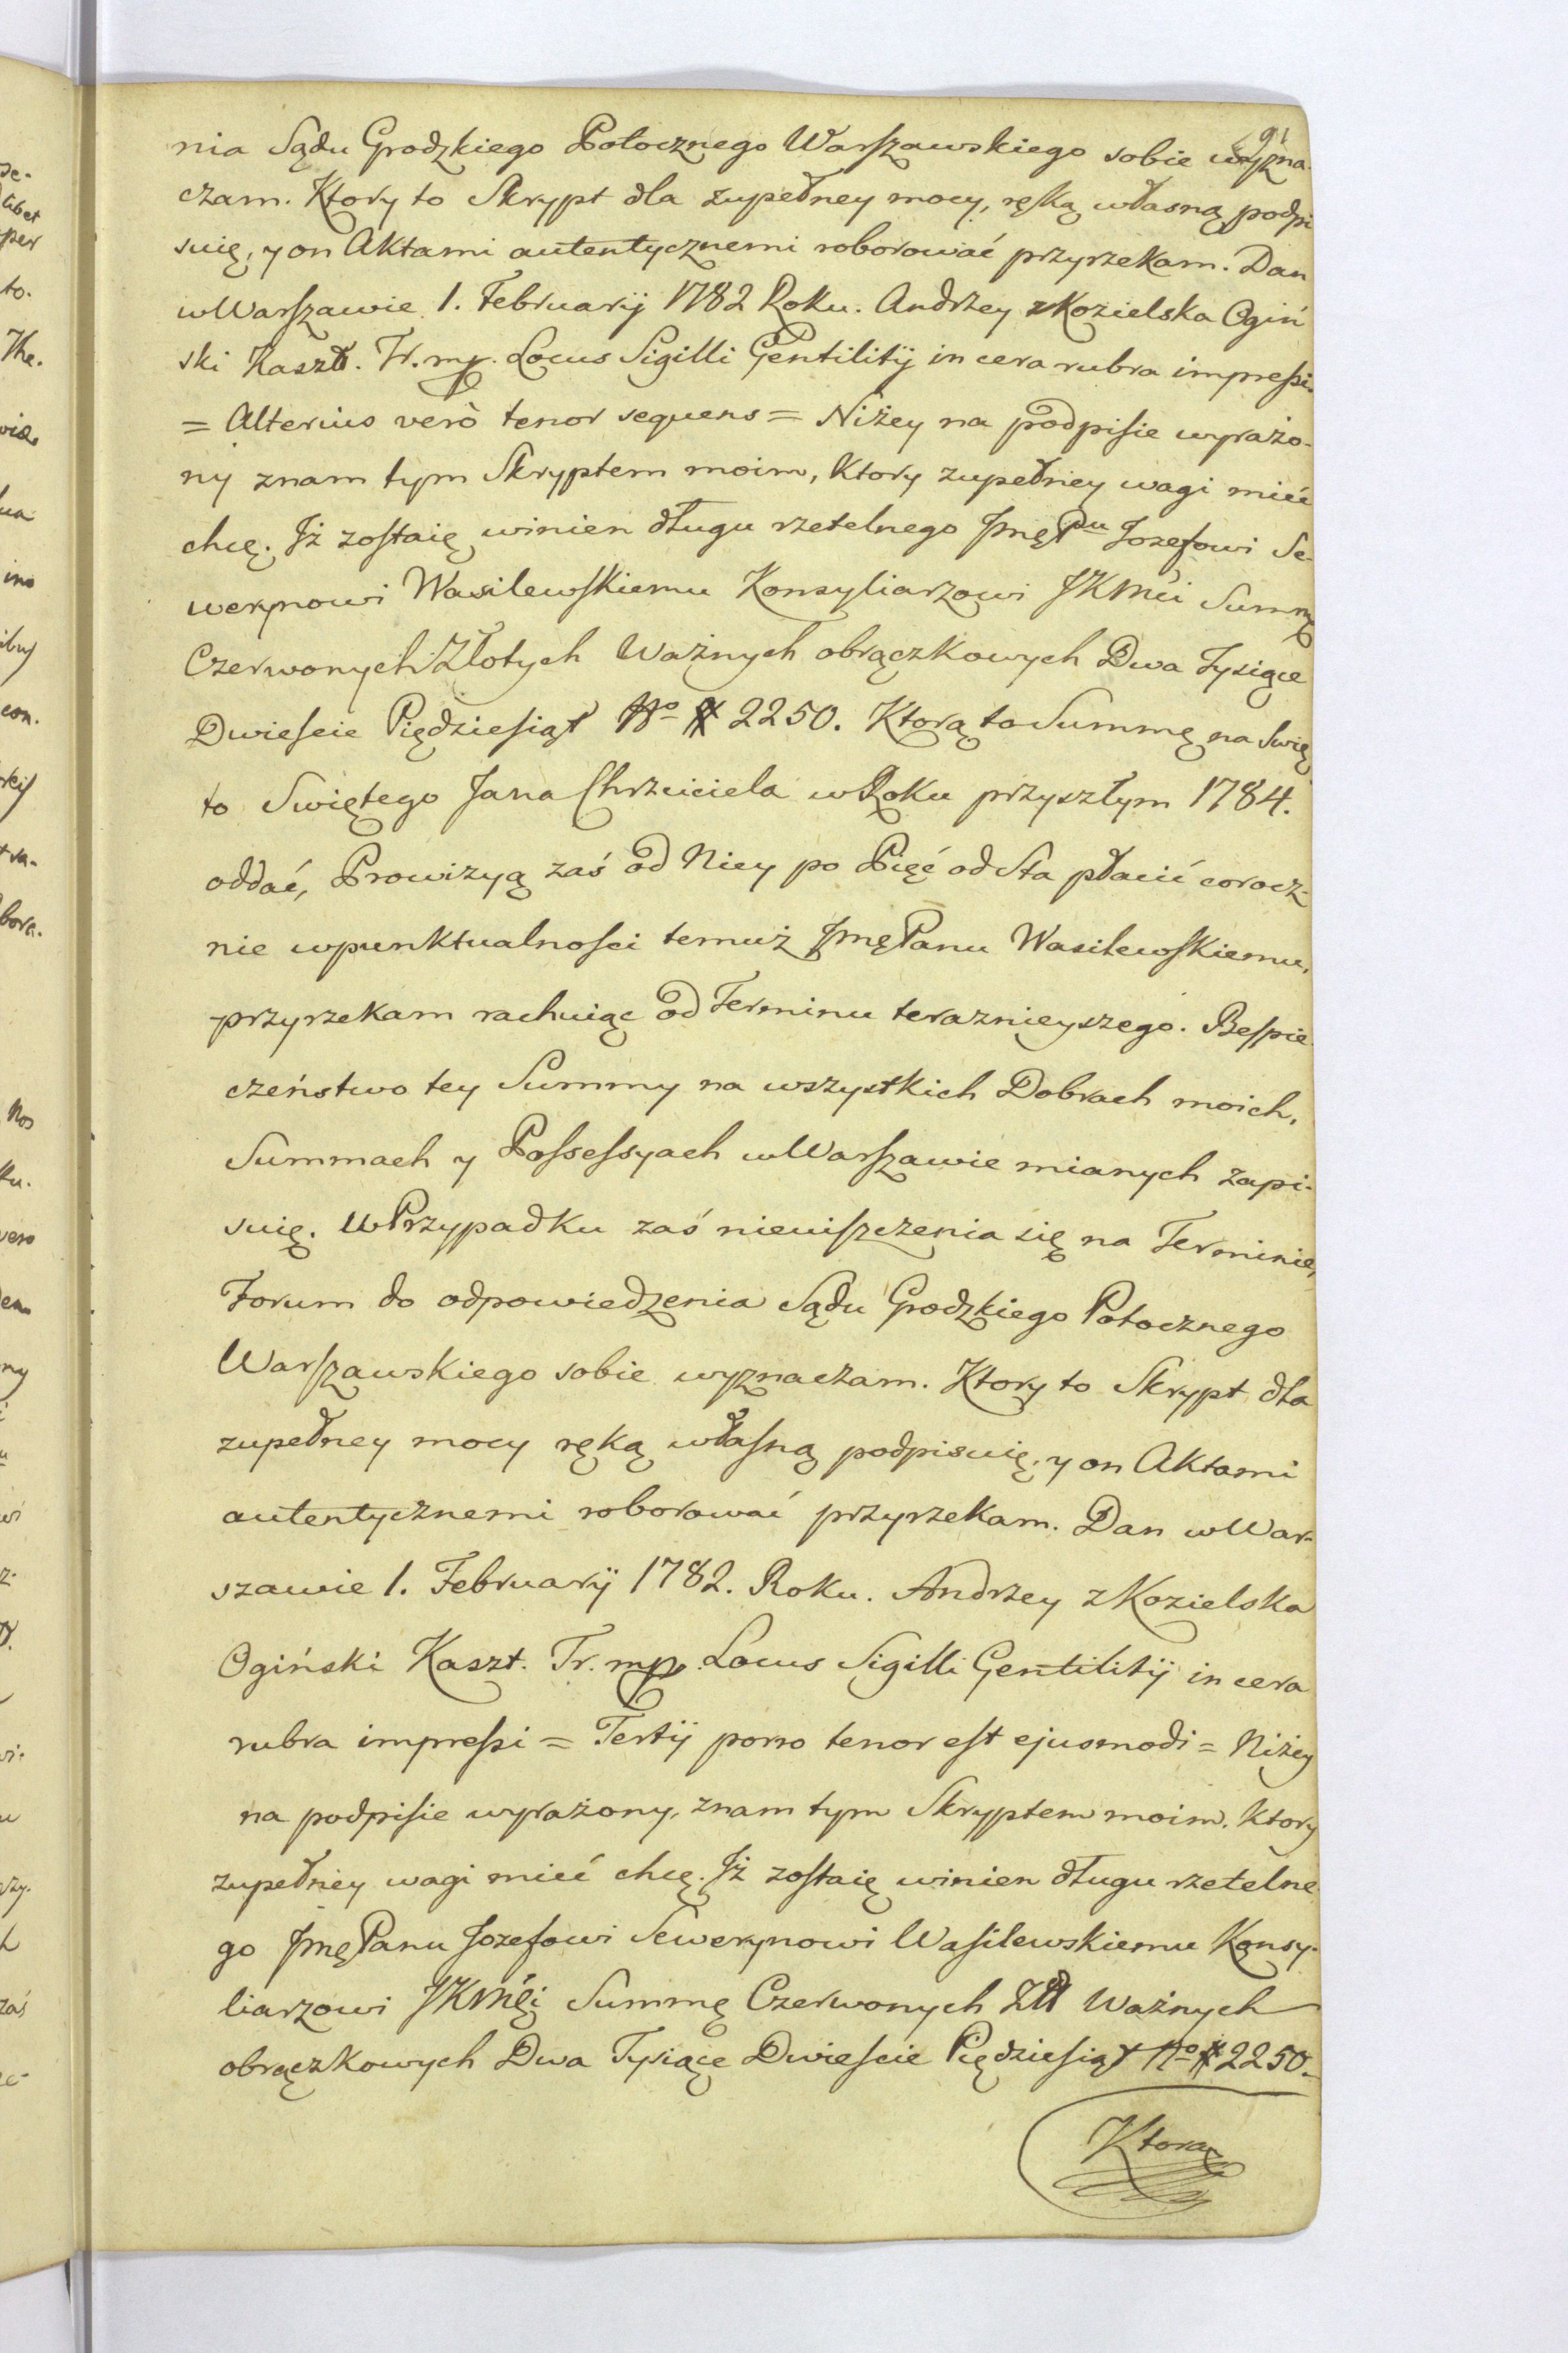 91
nia Sądu Grodzkiego Potocznego Warszawskiego sobie wyzna-
czam. Ktory to Skrypt dla zupełney mocy, ręką własną podpi
suię, y on Aktami autentycznemi roborować przyrzekam. Dan
w Warszawie 1. Februarij 1782 Roku. Andrzey z Kozielska Ogiń
ski Kaszt. Tr. mp. Locus Sigilli Gentilitij in cera rubra impressi.
= Alterius verò tenor sequens = Niżey na podpisie wyrażo-
ny znam tym Skryptem moim, Ktory zupełney wagi mieć
chcę. Iż zostaię winien długu rzetelnego Jmę Pnu Jozefowi Se-
werynowi Wasilewskiemu Konsyliarzowi JKMci Summę
Czerwonych Złotych Ważnych obrączkowych Dwa Tysiące
Dwieście Piędziesiąt No # 2250. Ktorą to Summę na Swię
to Swiętego Jana Chrzciciela w Roku przyszłym 1784.
oddać, Prowizyą zaś od Niey po Pięć od Sta płacić corocz-
nie w punktualności temuż Jmę Panu Wasilewskiemu,
przyrzekam rachuiąc od Terminu teraznieyszego. Bespie
czeństwo tey Summy na wszystkich Dobrach moich,
Summach y Possessyach w Warszawie mianych zapi-
suię. W Przypadku zaś nieuiszczenia się na Terminie,
Forum do odpowiedzenia Sądu Grodzkiego Potocznego
Warszawskiego sobie wyznaczam. Ktory to Skrypt dla
zupełney mocy ręką własną podpisuię, y on Aktami
autentycznemi roborować przyrzekam. Dan w War-
szawie 1. Februarij 1782. Roku. Andrzey z Kozielska
Ogiński Kaszt. Tr. mp. Locus Sigilli Gentilitij in cera
rubra impressi = Tertij porro tenor est ejusmodi = Niżey
na podpisie wyrażony, znam tym Skryptem moim. Ktory
zupełney wagi mieć chcę. Iż zostaię winien długu rzetelne
go Jmę Panu Jozefowi Sewerynowi Wasilewskiemu Konsy-
liarzowi JKMći Summę Czerwonych Złł Ważnych
obrączkowych Dwa Tysiące Dwieście Piędziesiąt No # 2250.
Ktorą